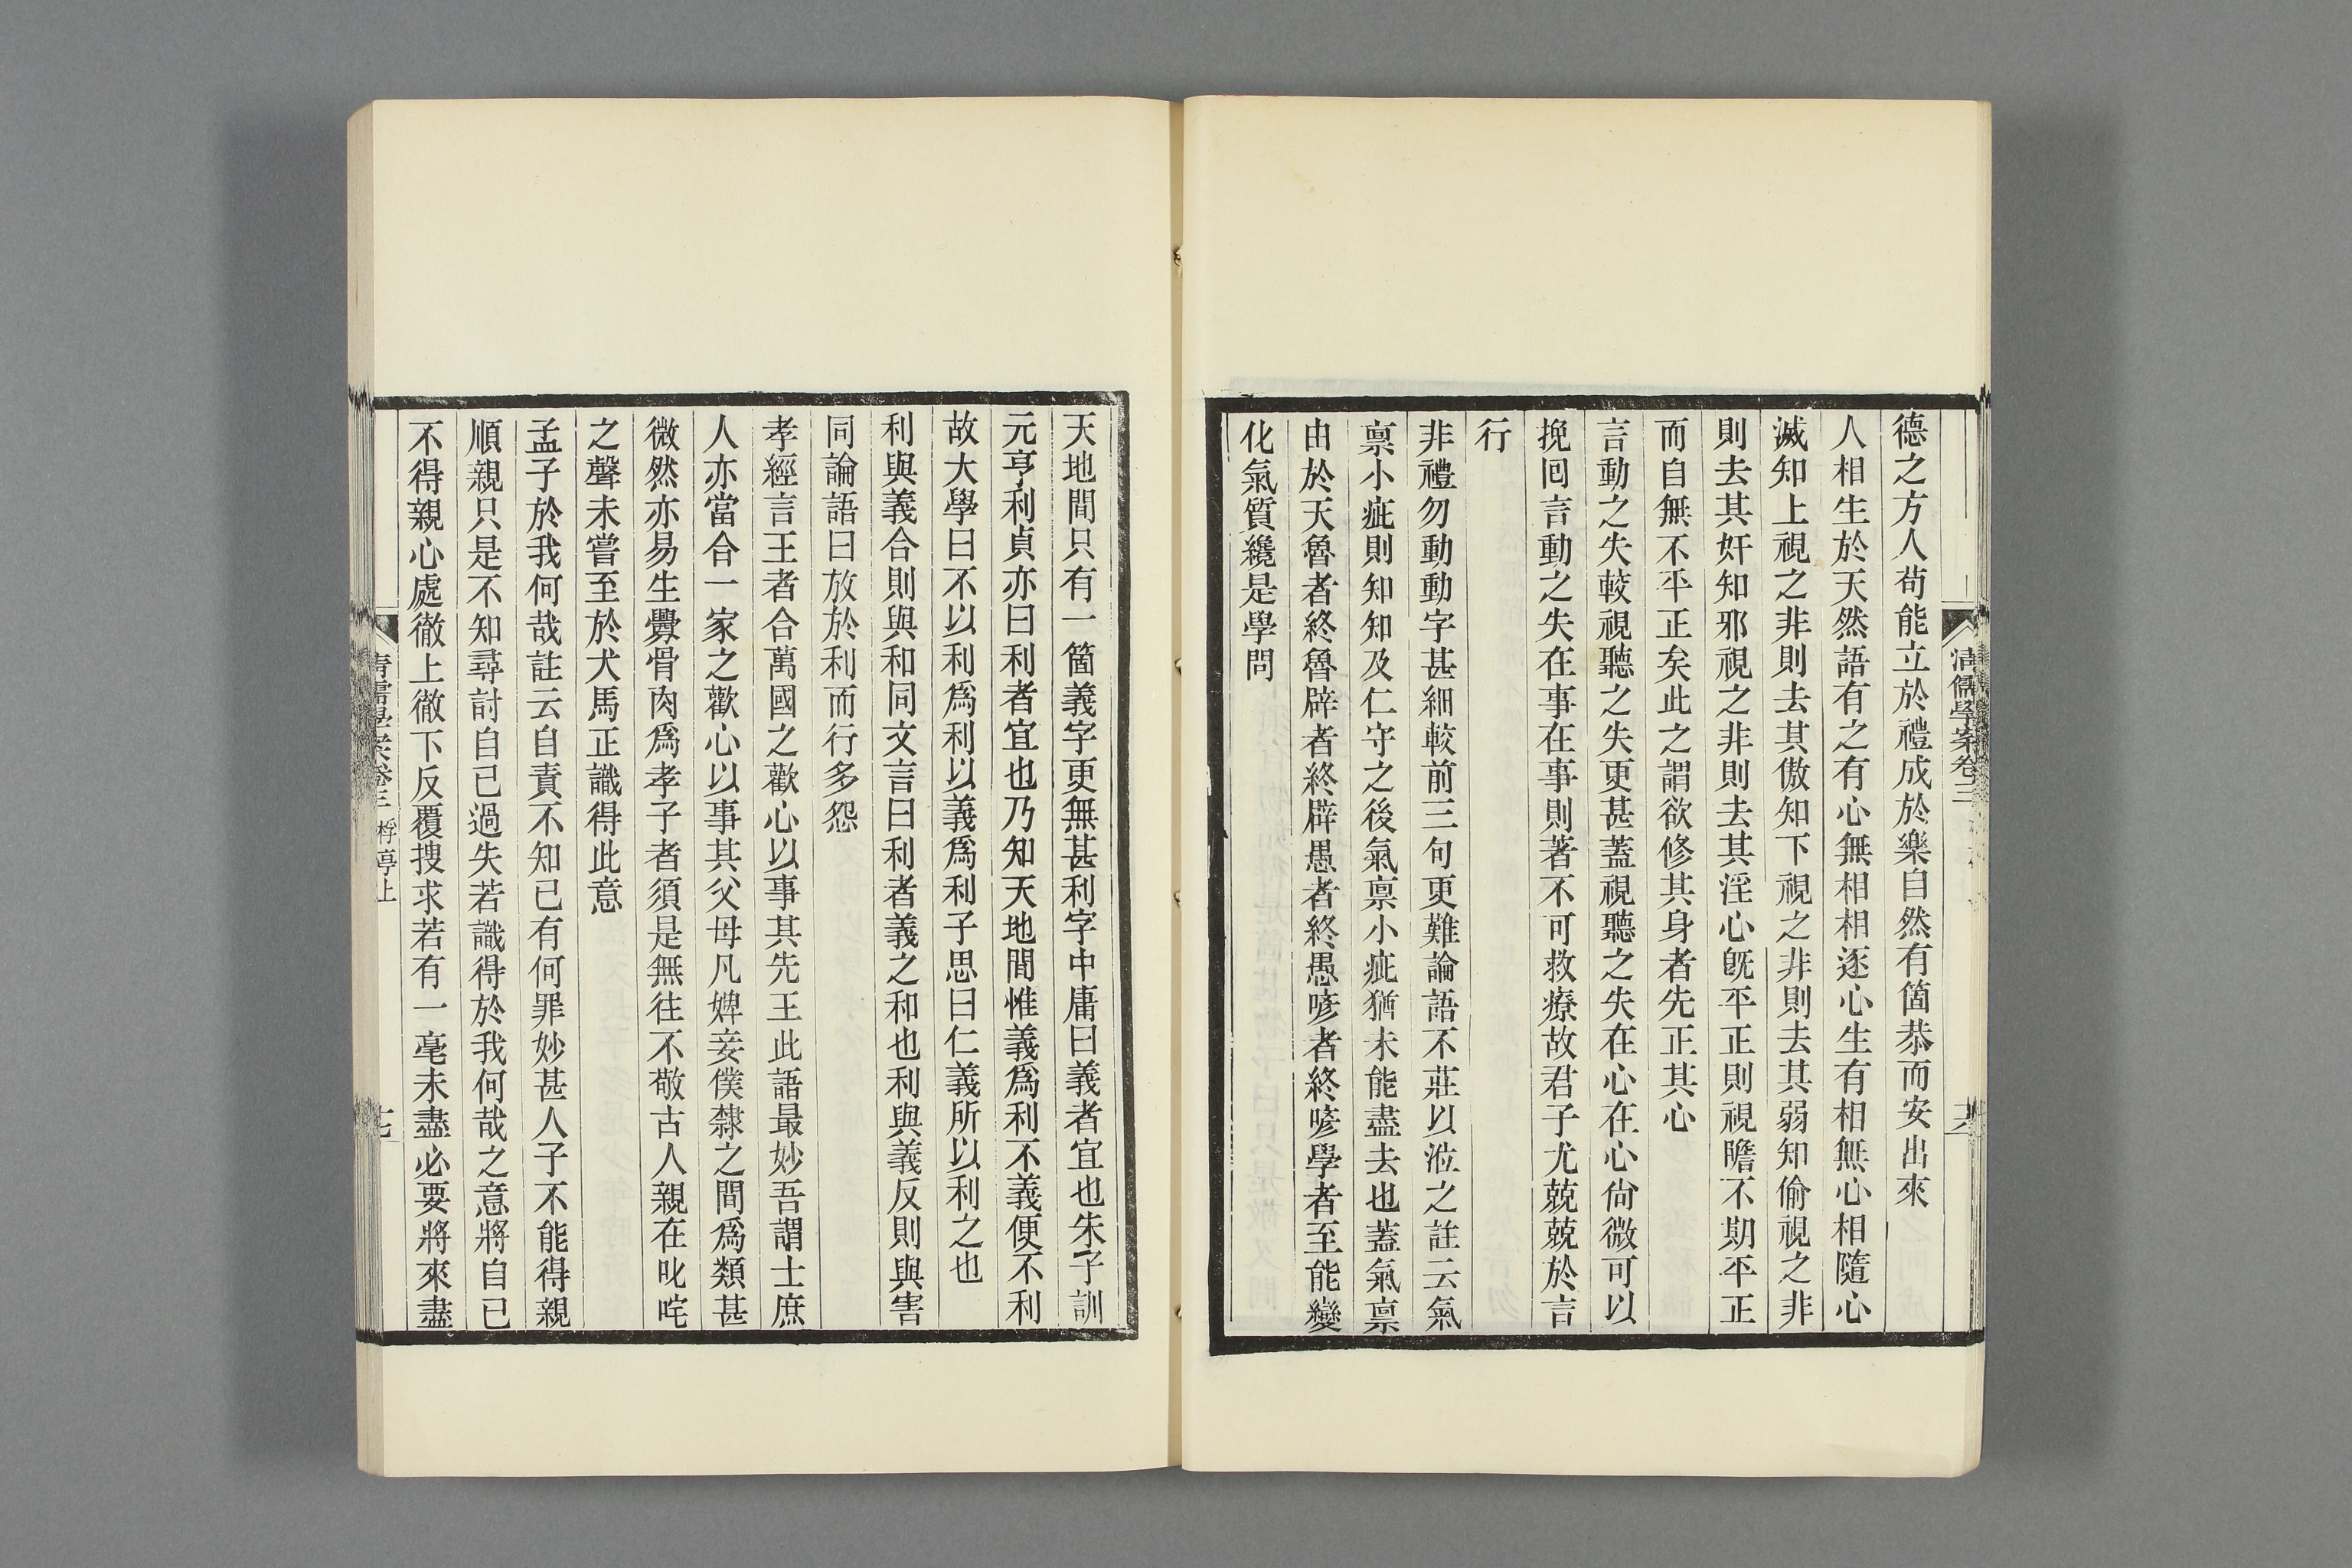 清儒學案卷三
德之方人苟能立於禮成於樂自然有箇恭而安出來
人相生於天然語有之有心無相相逐心生有相無心相隨心
滅知上視之非則去其傲知下視之非則去其弱知偷視之非
則去其奸知邪視之非則去其淫心旣平正則視瞻不期平正
而自無不平正矣此之謂欲修其身者先正其心
言動之失較視聽之失更甚蓋視聽之失在心在心尙微可以
挽回言動之失在事在事則著不可救療故君子尤兢兢於言
行
非禮勿動動字甚細較前三句更難論語不莊以涖之註云氣
禀小疵則知知及仁守之後氣禀小疵猶未能盡去也蓋氣禀
由於天魯者終魯辟者終辟愚者終愚喭者終喭學者至能變
化氣質纔是學問
天地間只有一箇義字更無甚利字中庸曰義者宜也朱子訓
元亨利貞亦曰利者宜也乃知天地間惟義爲利不義便不利
故大學曰不以利爲利以義爲利子思曰仁義所以利之也
利與義合則與和同文言曰利者義之和也利與義反則與害
同論語曰放於利而行多怨
孝經言王者合萬國之歡心以事其先王此語最妙吾謂士庶
人亦當合一家之歡心以事其父母凡婢妾僕隸之間爲類甚
微然亦易生釁骨肉爲孝子者須是無往不敬古人親在叱咤
之聲未嘗至於犬馬正識得此意
孟子於我何哉註云自責不知已有何罪妙甚人子不能得親
順親只是不知尋討自已過失若識得於我何哉之意將自已
不得親心處徹上徹下反覆搜求若有一毫未盡必要將來盡
清儒學案卷三 桴亭上 十七